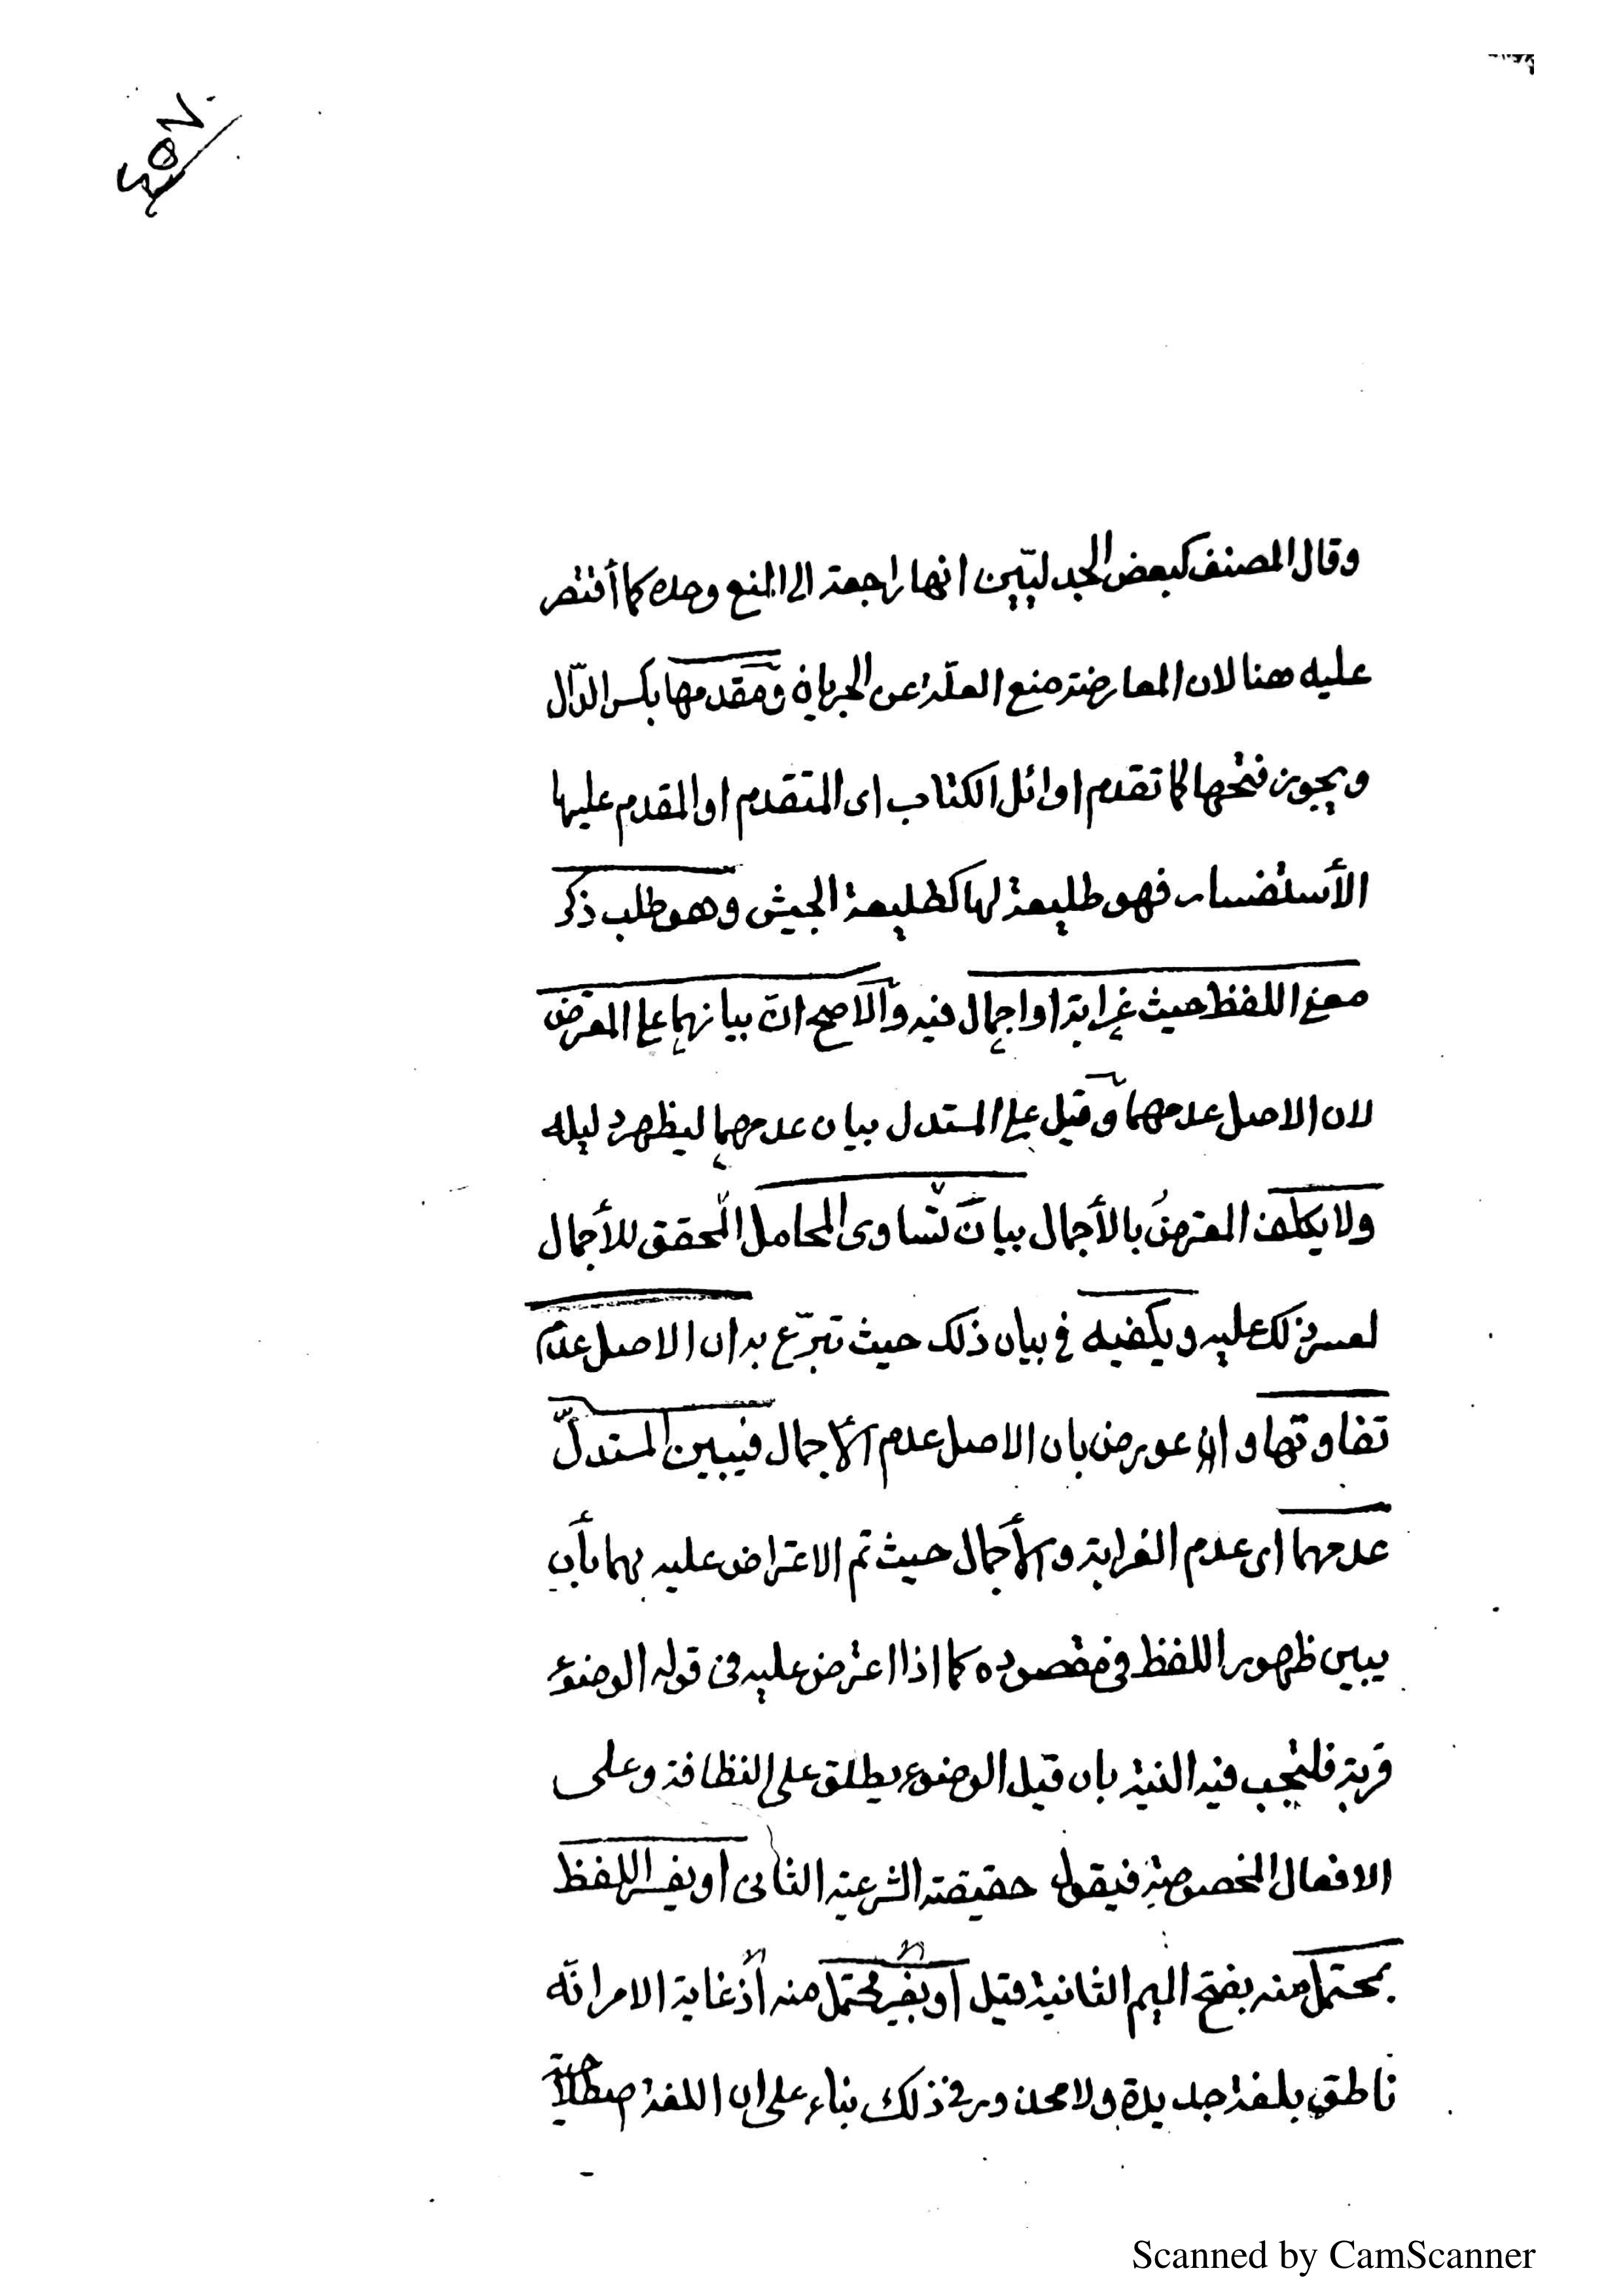 وقال المصنف كبعض الجدليّين انها راجعة الى المنع وحده كما أقتصر
عليه هنا لان المعارضة منع العلّة عن الجريان ومقدمها بكسر الدّال
ويجوز فتحها كما تقدم اوائل الكتاب اى المتقدم او المقدم عليها
الأستفسار فهو طليعة لها كطليعة الجيش وهو طلب ذكر
معنى اللفظ حيث غرابة او اجمال فيه والأصح انّ بيانهما على المعترض
لان الاصل عدمهما وقيل على المستدل بيان عدمهما ليظهر دليله
ولا يكلف المعترض بالأجمال بيان تساوى المحامل المحقق للأجمال
لعسر ذلك عليه ويكفيه فى بيان ذلك حيث تبرّع به ان الاصل عدم
تفاوتها وان عورض بان الاصل عدم الأجمال فيبين المستدلّ
عدمهما اى عدم الغرابة والأجمال حيث تم الاعتراض عليه بهما بأن
يبين ظهور اللفظ فى مقصوده كما اذا اعترض عليه فى قوله الوضوء
قربة فلتجب فيه النية بان قيل الوضوء يطلق على النظافة وعلى
الافعال المخصوصة فيقول حقيقته الشرعية الثانى او يفسر اللفظ
بمحتمل منه بفتح الميم الثانية قيل او بغير محتمل منه اذ غاية الامر انّه
ناطق بلغة جديدة ولا محذور فى ذلك بناء على ان اللغة اصطلاحية
Scanned by CamScanner